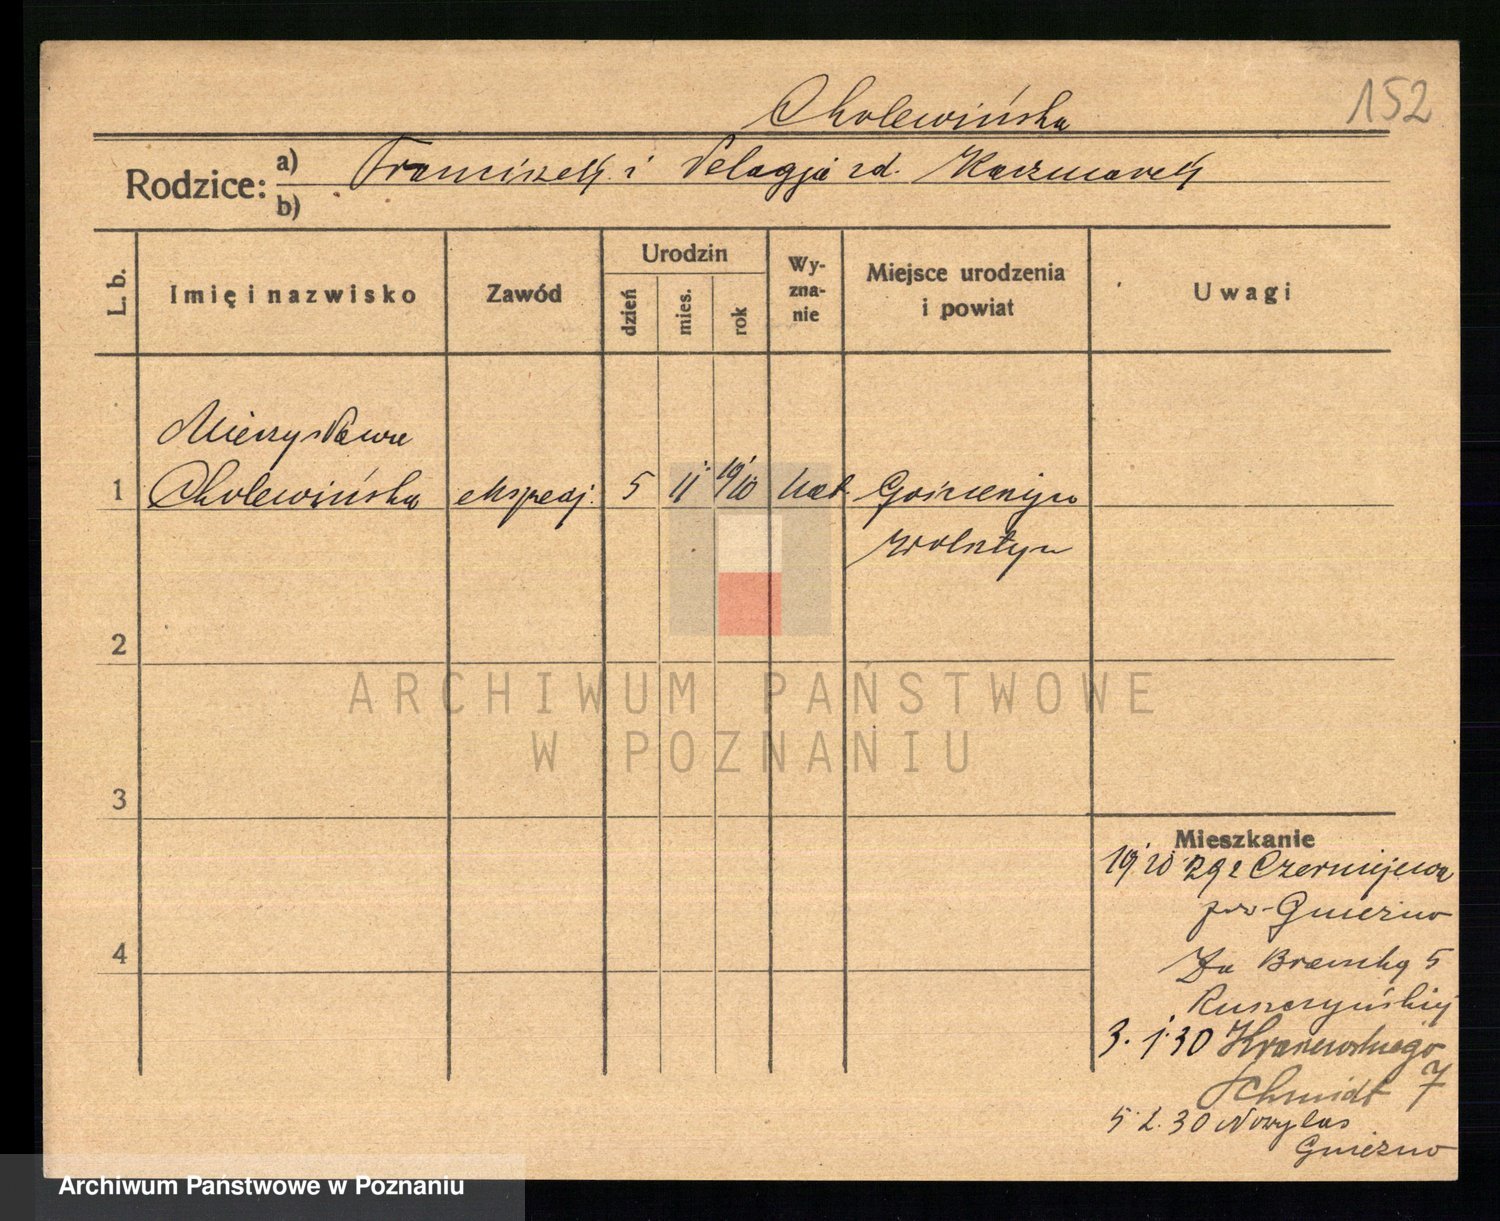 152
Cholewińska
Rodzice: a) Franciszek i Pelagja zd. Kaczmarek
b)
L. b.
Imię i nazwisko
Zawód
Urodzin
dzień
mies.
rok
Wy-
zna-
nie
Miejsce urodzenia
i powiat
Uwagi
Mieczysława
1 Cholewińska ekspedj. 5 11 1910 kat. Gościeszyn
Wolsztyn
2
3
4
Mieszkanie
Czerniejewa
pow. Gniezno
Za Bramką 5
Ruszczyński
3. 1. 30 Kraszewskiego
Schmidt 7
5 2. 30 Nowylas
Gniezno
ARCHIWUM PAŃSTWOWE
W POZNANIU
Archiwum Państwowe w Poznaniu